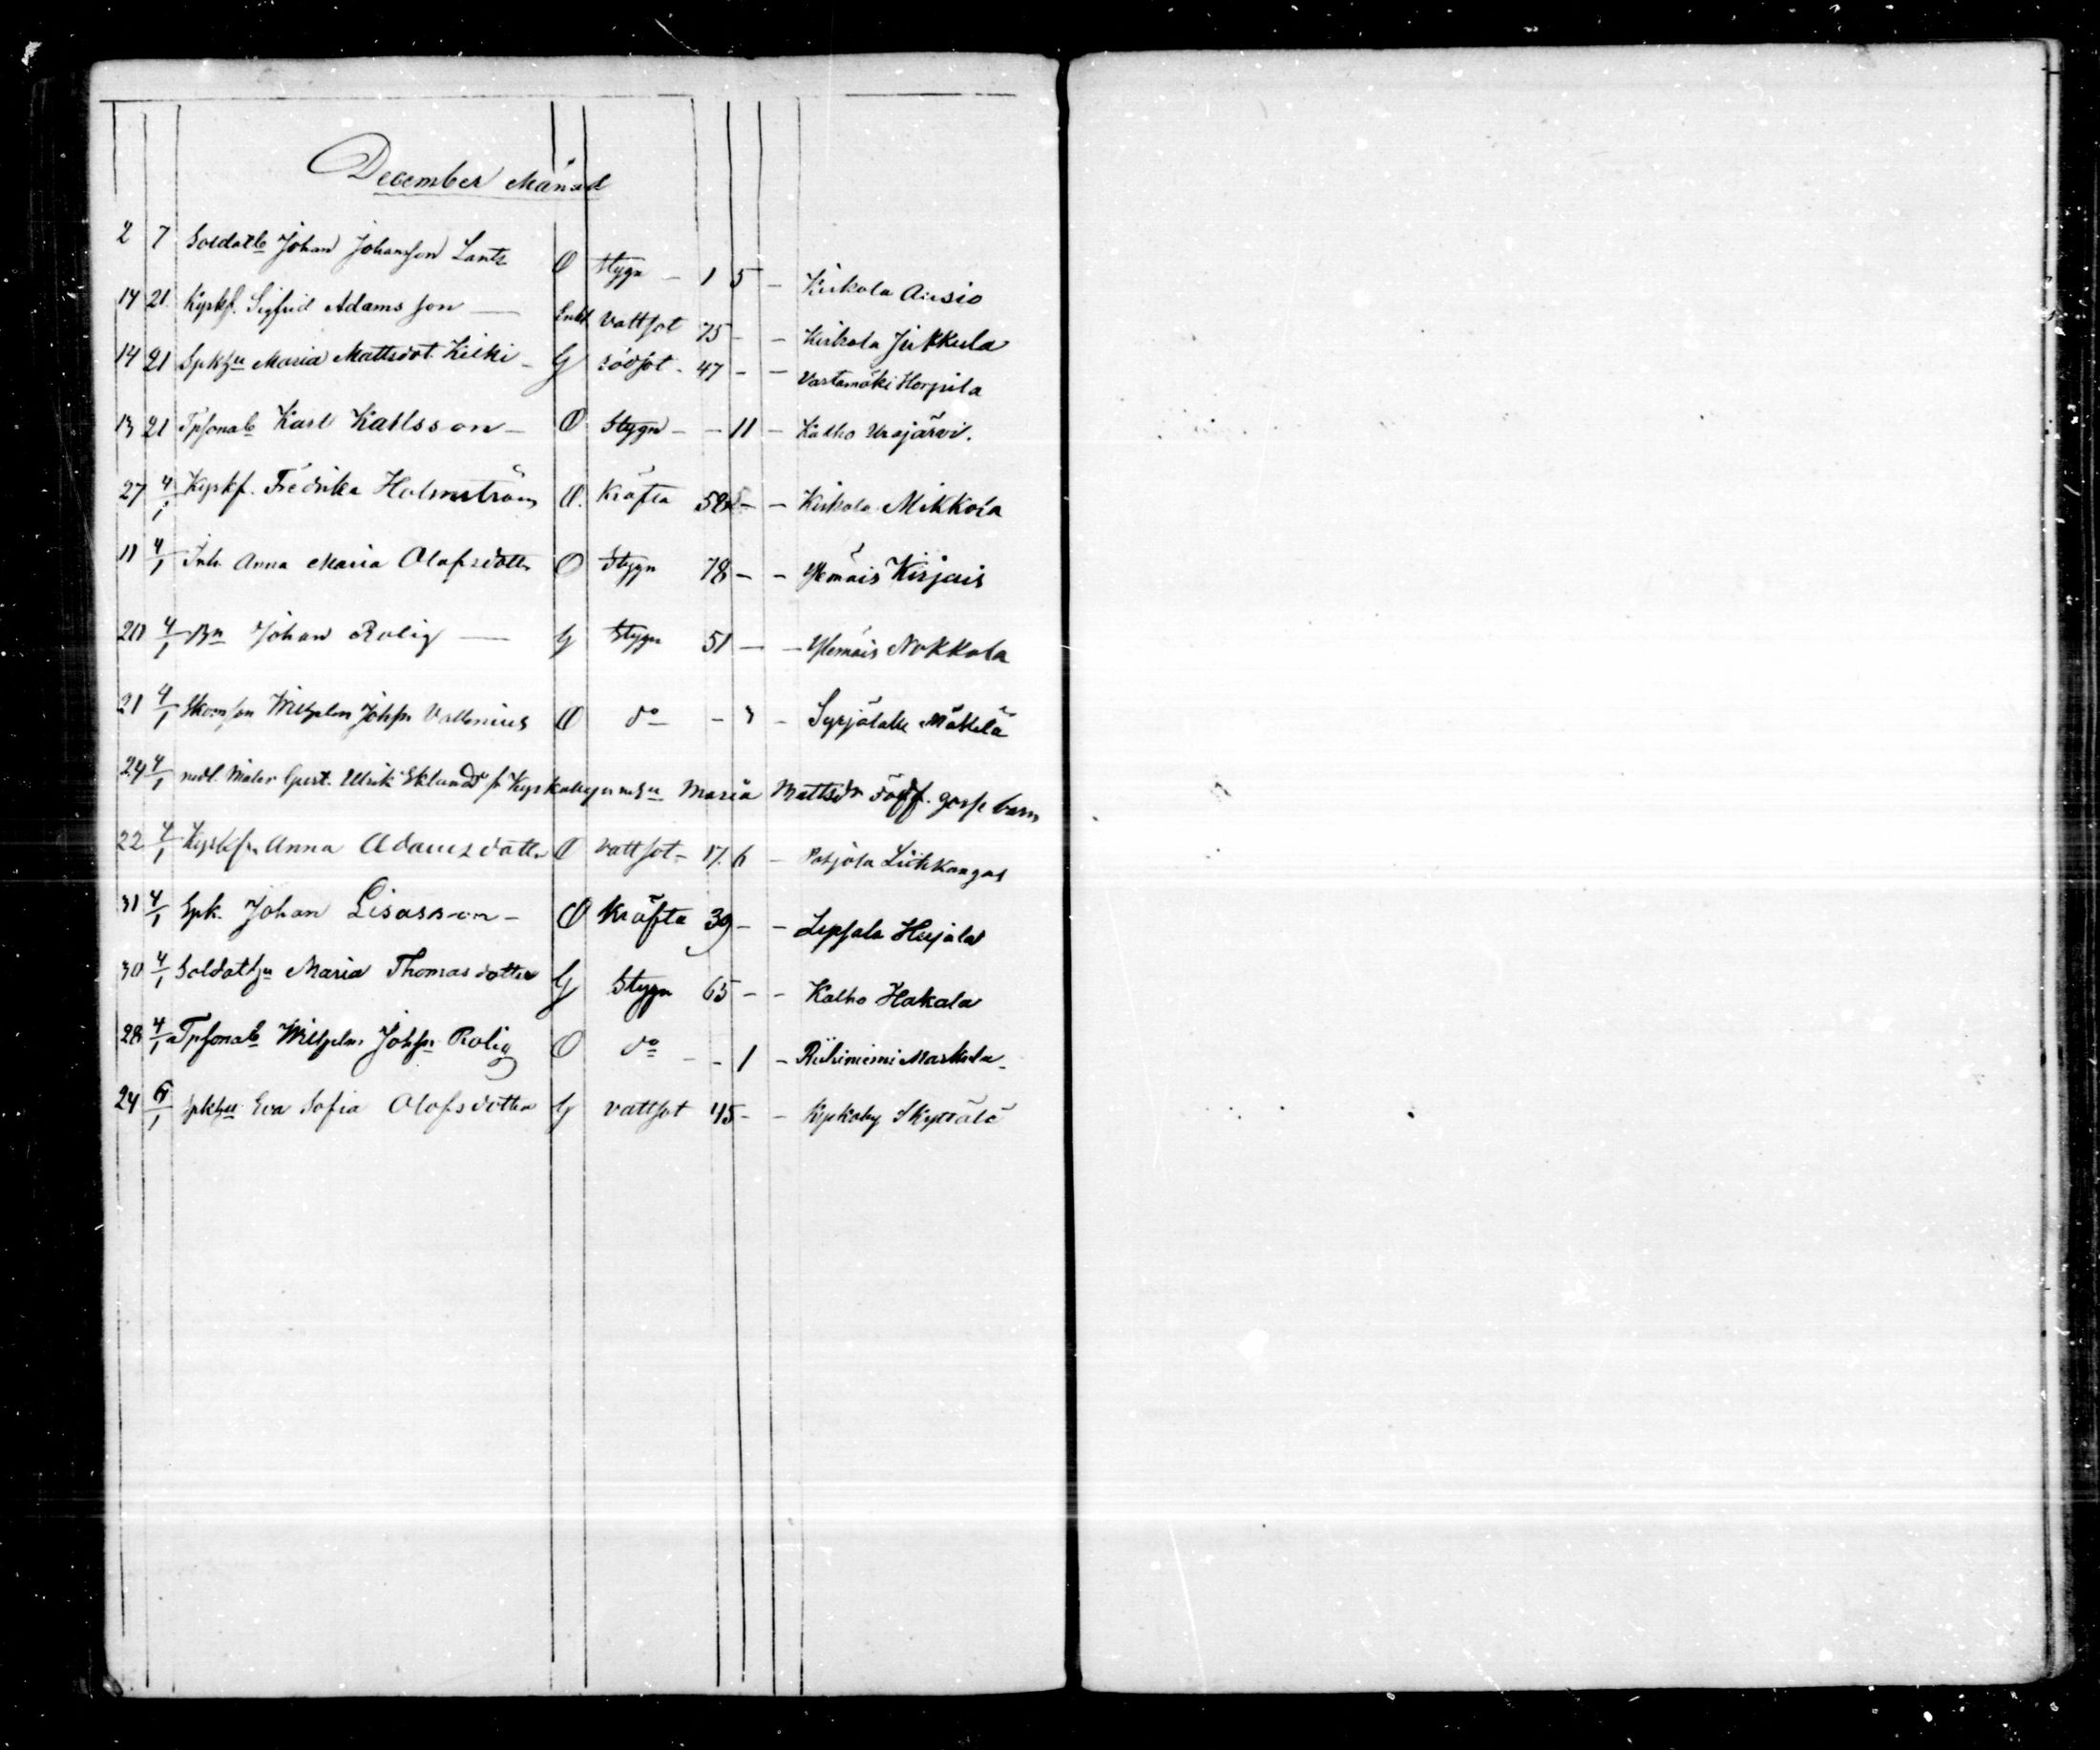 December Månad
2 7 Soldatb Johan Johansson Lantz O Stygn - 1 5 - Kirkola Ausio
14 21. Kyrkf. Sigfrid Adamsson — Enkl Vattsot 75 - - Kirkola Jukkula
14 21 Spkhu Maria Mattsdot. Kilki - G rödsot - 47 - - Vartamäki Horpila
13 21 Tpsonab Karl Karlsson - O Stygn - - 11 - Kalho Urajärvi.
27 4/1 Kyrkf. Fredrika Holmström O. Kräfta 58 - - Kirkola Mikkola
11 4/1 Inh. Anna Maria Olofsdotter O Stygn 78 - - Ylemäis Kirjais
20 4/1 Bn Johan Rolig — G Stygn 51 - - Ylemäis Nokkala
21 4/1 Skomson Wilhelm Johsn Vallenius O do - 3 - Syrjätaka Mäkelä
24 4/1 Målar Gust. Ulrik Eklunds fr Kyrkoby Maria Mattsdr födf. gosse barn
22 4/1 Kyrkf. Anna Adamsdotter O Vattsot - 17. 6 - Pohjola Liehkangas
31 4/1 Spk. Johan Lisasson - O Kräfta 39 - - Lepsala Heijala
30 4/1 Soldathu Maria Thomasdotter G Stygn 65 - - Kalho Hakala
28 4/1 Tpsonab Wilhelm Johsn Rolig O do - - 1 - Riihiniemi Markula
24 6/1 Spkhu Eva Sofia Olofsdotter G Vattsot 45 - - Kyrkoby Skyttälä